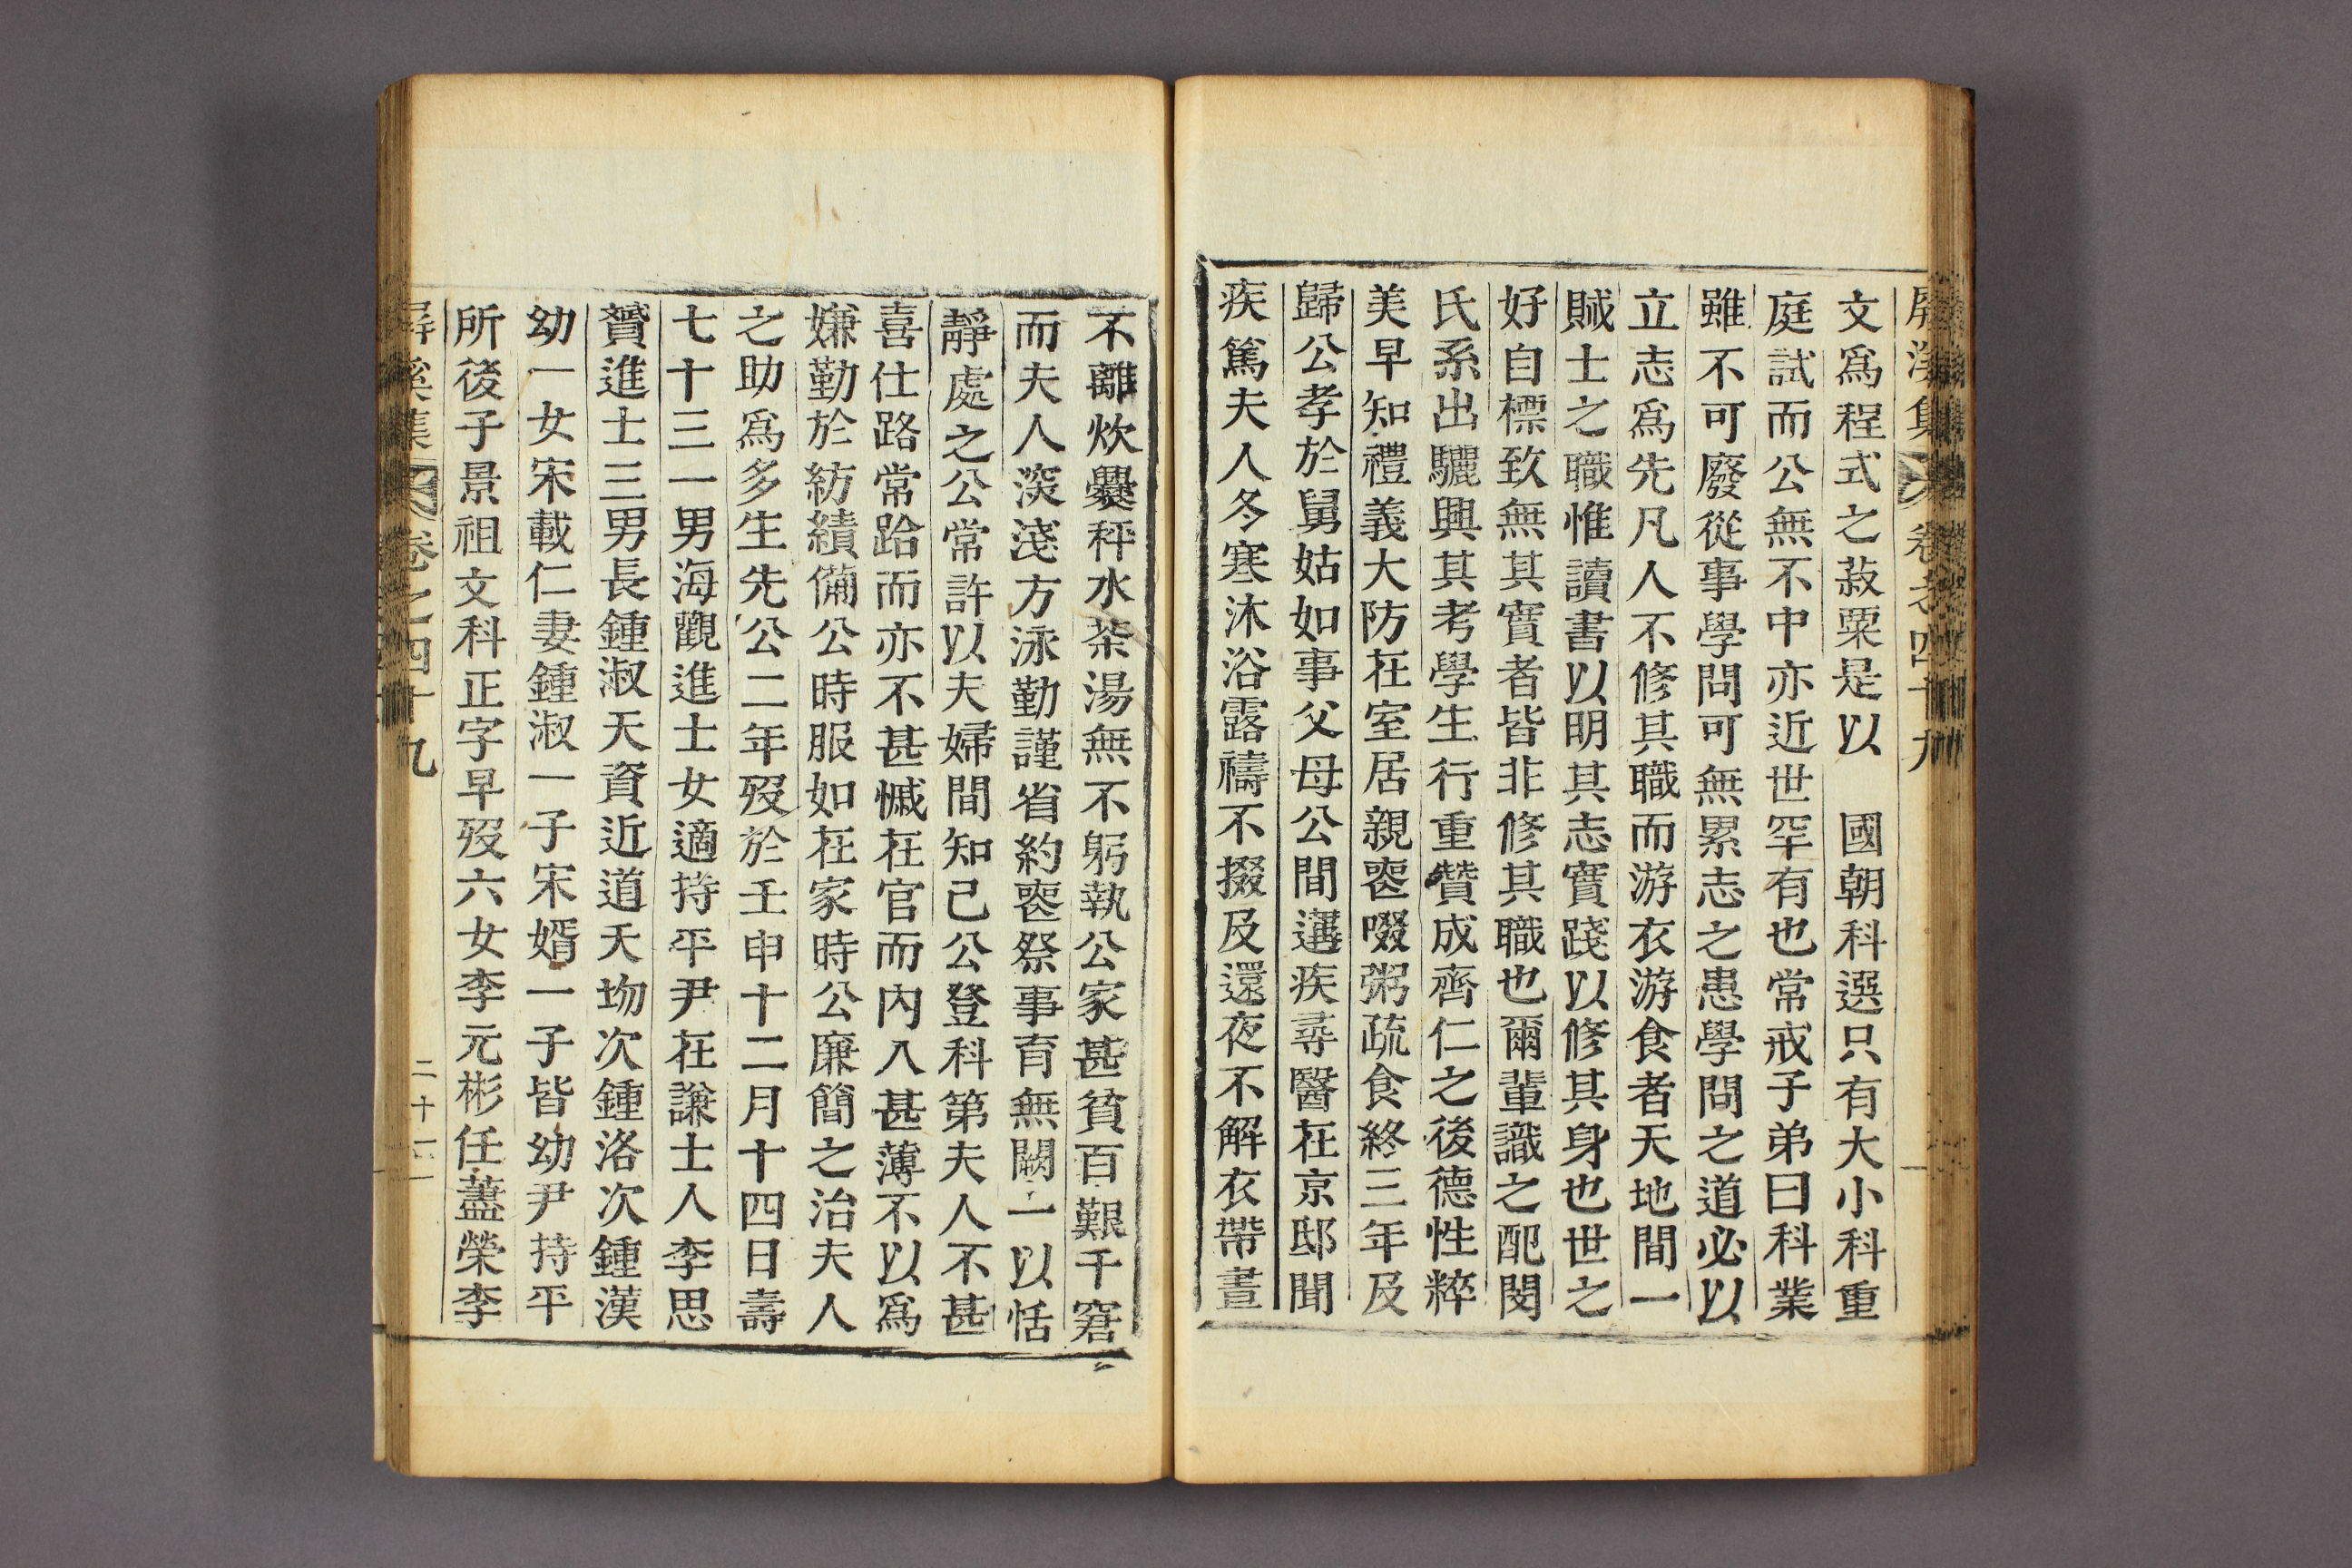 屛溪集 卷之四十九
文爲程式之菽粟是以 國朝科選只有大小科重
庭試而公無不中亦近世罕有也常戒子弟曰科業
雖不可廢從事學問可無累志之患學問之道必以
立志爲先凡人不修其職而游衣游食者天地間一
賊士之職惟讀書以明其志實踐以修其身也世之
好自標致無其實者皆非修其職也爾輩識之配閔
氏系出驪興其考學生行重贊成齊仁之後德性粹
美早知禮義大防在室居親喪啜粥疏食終三年及
歸公孝於舅姑如事父母公間遘疾尋醫在京邸聞
疾篤夫人冬寒沐浴露禱不掇及還夜不解衣帶晝
不離炊爨秤水茶湯無不躬執公家甚貧百艱千窘
而夫人淡淺方泳勤謹省約喪祭事育無闕一以恬
靜處之公常許以夫婦間知己公登科第夫人不甚
喜仕路常跲而亦不甚慽在官而內入甚薄不以爲
嫌勤於紡績備公時服如在家時公廉簡之治夫人
之助爲多生先公二年歿於壬申十二月十四日壽
七十三一男海觀進士女適持平尹在謙士人李思
贇進士三男長鍾淑天資近道夭坳次鍾洛次鍾漢
幼一女宋載仁妻鍾淑一子宋婿一子皆幼尹持平
所後子景祖文科正字早歿六女李元彬任藎榮李
屛溪集 卷之四十九